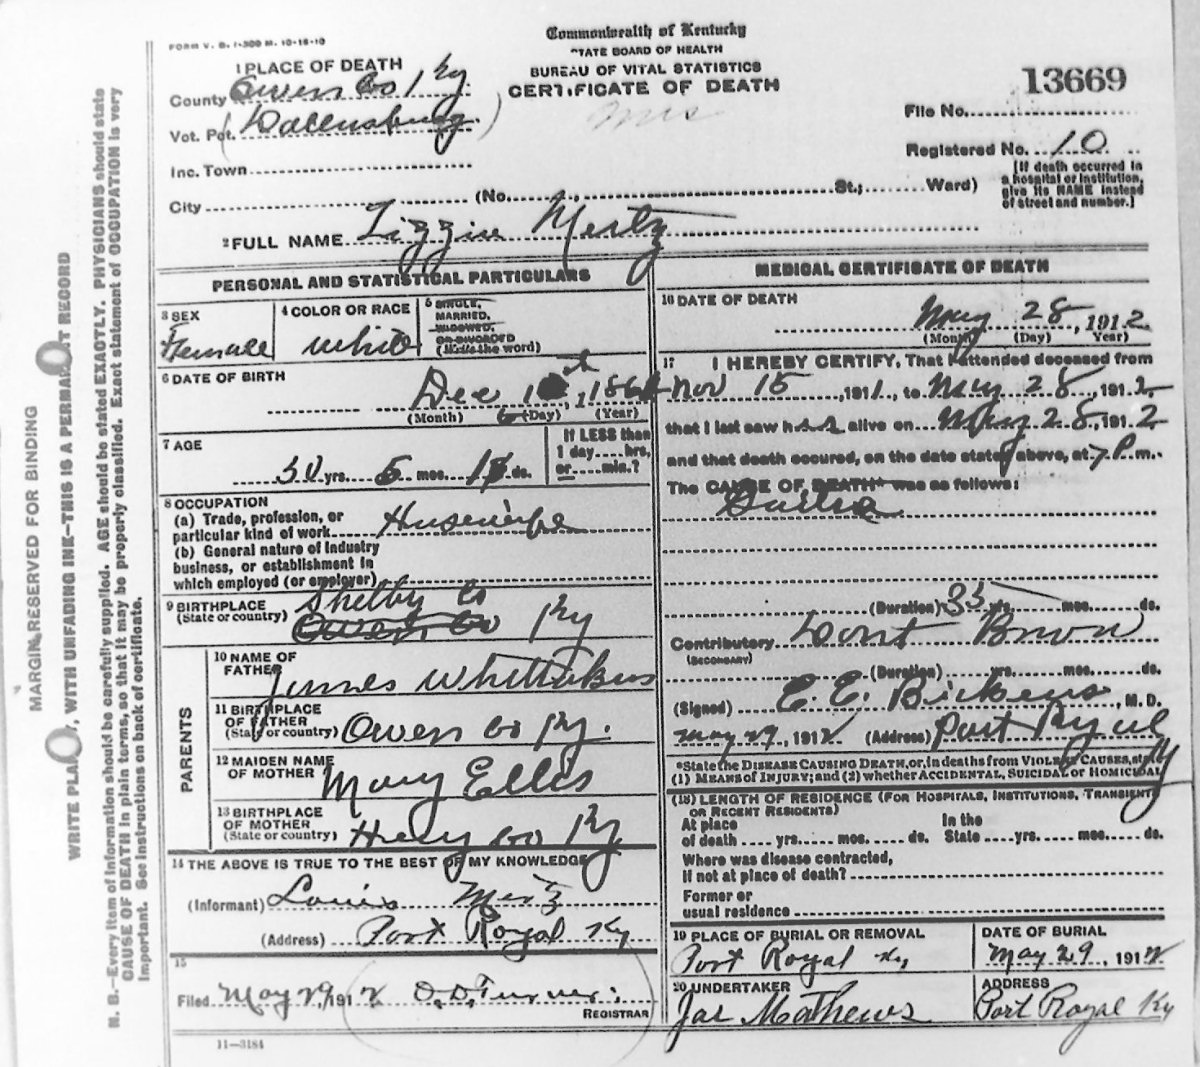 FORM V. S. 1-300 M. 10-15-10
Commonwealth of Kentucky
STATE BOARD OF HEALTH
BUREAU OF VITAL STATISTICS
CERTIFICATE OF DEATH
mrs
1 PLACE OF DEATH
County Owen Co Ky
Vot. Pct. (Dallasburg)
Inc. Town
City
(No. St.; Ward)
13669
File No.
Registered No. 10
[If death occurred in
a hospital or institution,
give its NAME instead
of street and number.]
2 FULL NAME Lizzie Mertz
PERSONAL AND STATISTICAL PARTICULARS
3 SEX
Female
4 COLOR OR RACE
White
5 SINGLE,
MARRIED,
WIDOWED,
OR DIVORCED
(Write the word)
6 DATE OF BIRTH
Dec 1 th, 1
(Month) (Day) (Year)
7 AGE
yrs. 5 mos. ds.
If LESS than
1 day hrs.
or min.?
8 OCCUPATION
(a) Trade, profession, or
particular kind of work Husewife
(b) General nature of industry
business, or establishment in
which employed (or employer)
9 BIRTHPLACE
(State or country)
Shelby Co
Owen Co Ky
PARENTS
10 NAME OF
FATHER
James
11 BIRTHPLACE
OF FATHER
(State or country) Owen Co Ky.
12 MAIDEN NAME
OF MOTHER Mary Ellis
13 BIRTHPLACE
OF MOTHER
(State or country) Co Ky
14 THE ABOVE IS TRUE TO THE BEST OF MY KNOWLEDGE
(Informant) Louis Mertz
(Address) Port Royal Ky
15
Filed May 29, 1912 O. D. Turner
REGISTRAR
11—3184
MEDICAL CERTIFICATE OF DEATH
16 DATE OF DEATH
May 28, 1912
(Month) (Day) Year)
17 I HEREBY CERTIFY, That I attended deceased from
Nov 15, 1911, to May 28, 1912
that I last saw h alive on May 28, 1912
and that death occured, on the date stated above, at 7 P. m.
The CAUSE OF DEATH* was as follows:
(Duration) yrs. mos. ds.
Contributory Dont
(SECONDARY)
(Duration) yrs. mos. ds.
(Signed) E. E. Bickers, M. D.
May 29, 1912 (Address) Port Royal Ky
*State the DISEASE CAUSING DEATH, or, in deaths from VIOLENT CAUSES, state
(1) MEANS OF INJURY; and (2) whether ACCIDENTAL, SUICIDAL or HOMICIDAL
(18) LENGTH OF RESIDENCE (FOR HOSPITALS, INSTITUTIONS, TRANSIENTS
OR RECENT RESIDENTS)
At place In the
of death yrs. mos. ds. State yrs. mos. ds.
Where was disease contracted,
if not at place of death?
Former or
usual residence
19 PLACE OF BURIAL OR REMOVAL
Port Royal Ky
DATE OF BURIAL
May 29, 1912
20 UNDERTAKER
Jas Mathews
ADDRESS
Port Royal Ky
MARGIN RESERVED FOR BINDING
WRITE PLAINLY, WITH UNFADING INK—THIS IS A PERMANENT RECORD
N. B.—Every item of information should be carefully supplied. AGE should be stated EXACTLY. PHYSICIANS should state
CAUSE OF DEATH in plain terms, so that it may be properly classified. Exact statement of OCCUPATION is very
important. See instructions on back of certificate.